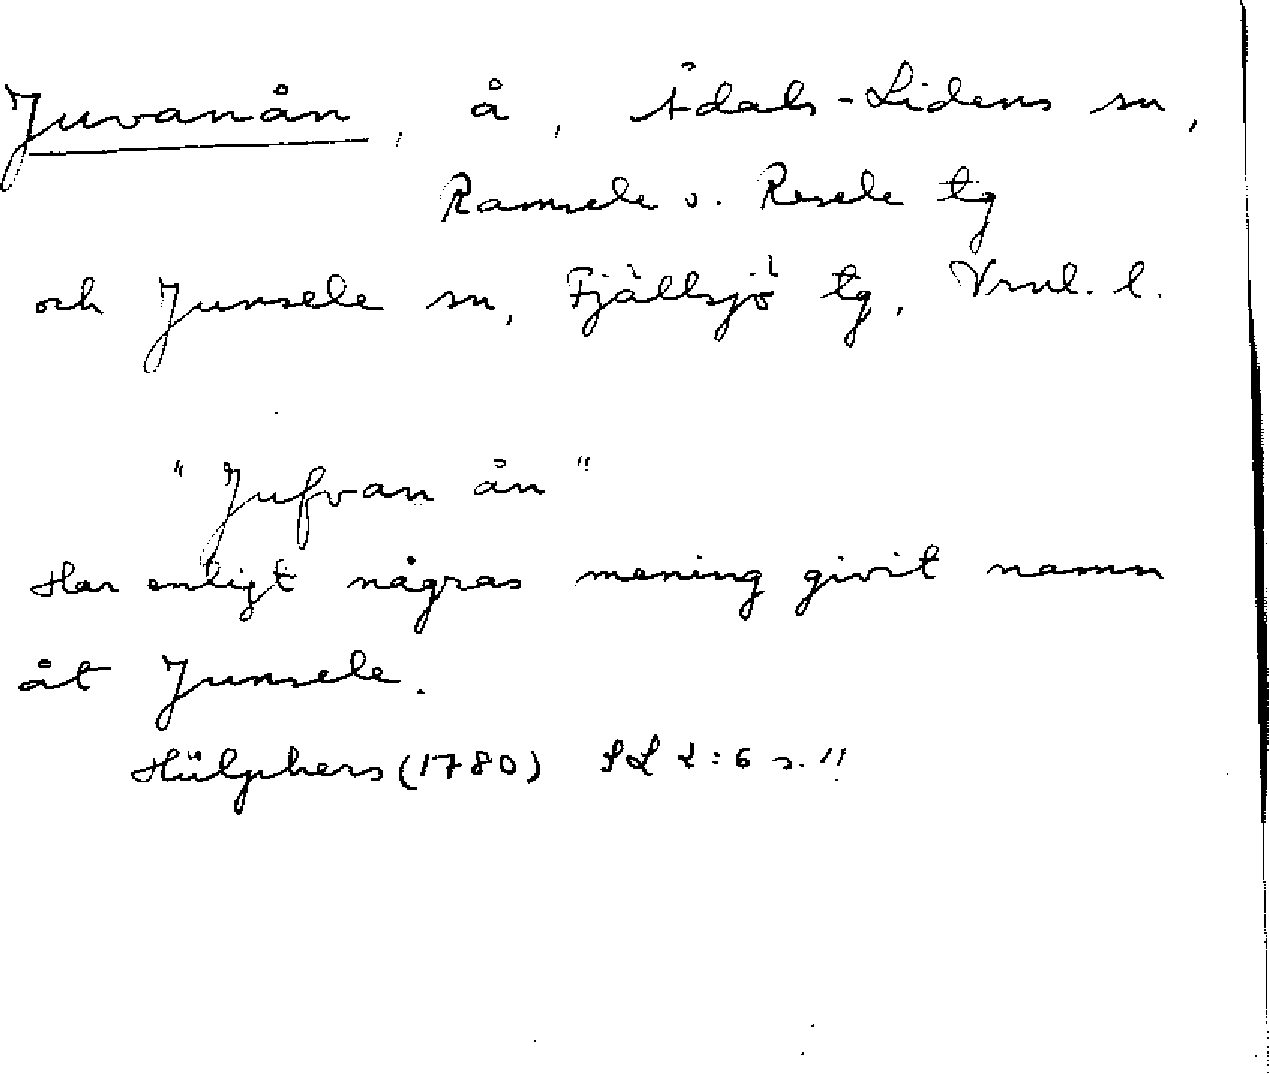 Juvanån, å, Ådals-Lidens sn,
Ramsele o. Resele tg
och Junsele sn, Fjällsjö tg, Vrnl. l.
"Jufvan ån"
Har enligt någras mening givit namn
åt Junsele.
Hülphers (1780) SL 2:6 s. 11